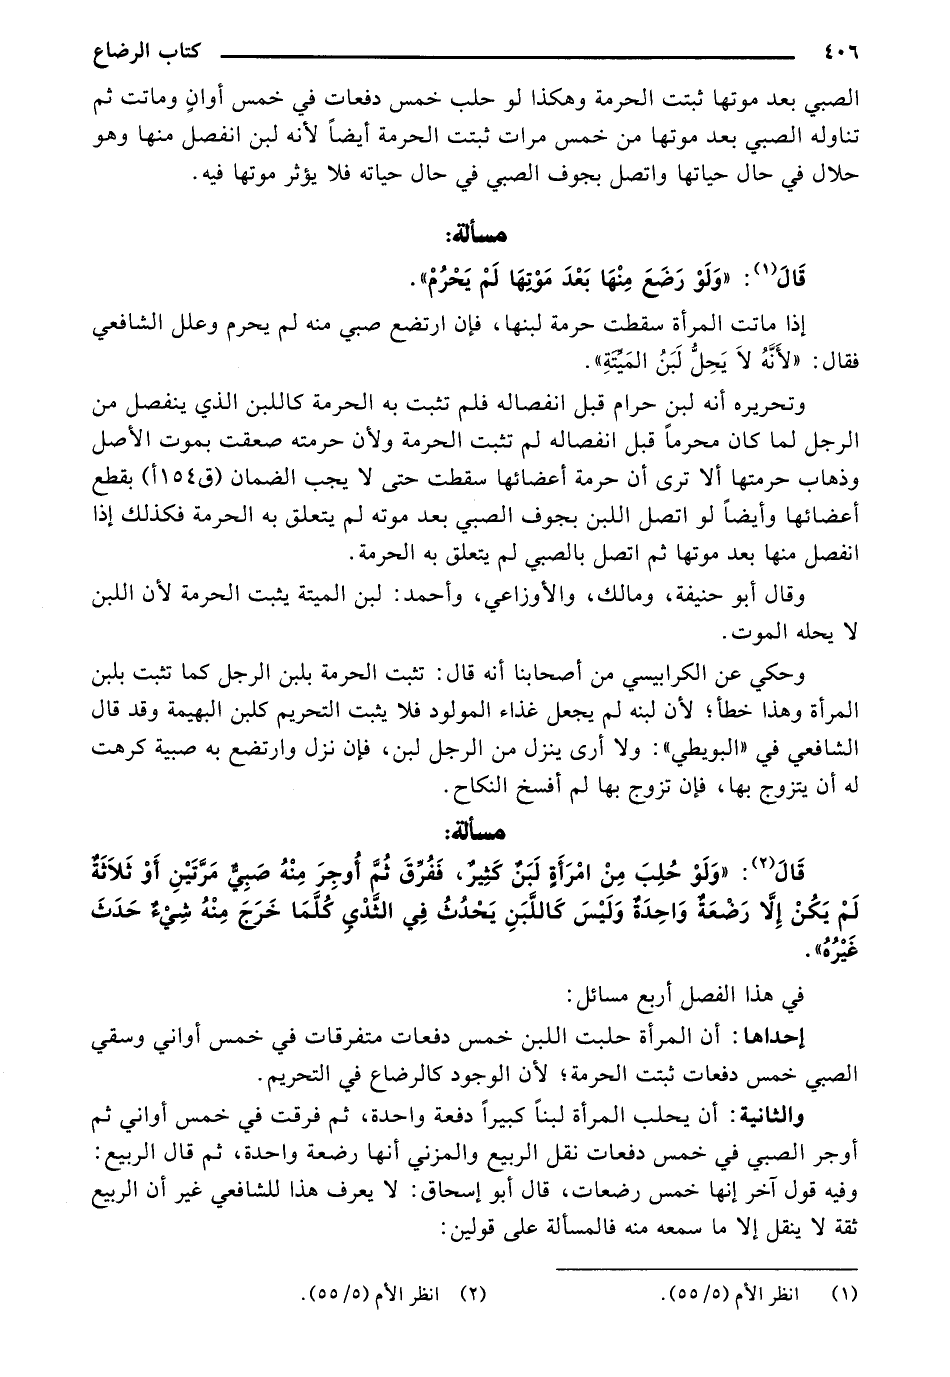 ٤٠٦ كتاب الرضاع
الصبي بعد موتها ثبتت الحرمة وهكذا لو حلب خمس دفعات في خمس أوانٍ وماتت ثم
تناوله الصبي بعد موتها من خمس مرات ثبتت الحرمة أيضاً لأنه لبن انفصل منها وهو
حلال في حال حياتها واتصل بجوف الصبي في حال حياته فلا يؤثر موتها فيه.
مسألة:
قَالَ(١): «وَلَوْ رَضَعَ مِنْهَا بَعْدَ مَوْتِهَا لَمْ يَحْرُمْ».
إذا ماتت المرأة سقطت حرمة لبنها، فإن ارتضع صبي منه لم يحرم وعلل الشافعي
فقال: «لأَنَّهُ لاَ يَحِلُّ لَبَنُ المَيِّتَةِ».
وتحريره أنه لبن حرام قبل انفصاله فلم تثبت به الحرمة كاللبن الذي ينفصل من
الرجل لما كان محرماً قبل انفصاله لم تثبت الحرمة ولأن حرمته صعقت بموت الأصل
وذهاب حرمتها ألا ترى أن حرمة أعضائها سقطت حتى لا يجب الضمان (ق١٥٤أ) بقطع
أعضائها وأيضاً لو اتصل اللبن بجوف الصبي بعد موته لم يتعلق به الحرمة فكذلك إذا
انفصل منها بعد موتها ثم اتصل بالصبي لم يتعلق به الحرمة.
وقال أبو حنيفة، ومالك، والأوزاعي، وأحمد: لبن الميتة يثبت الحرمة لأن اللبن
لا يحله الموت.
وحكي عن الكرابيسي من أصحابنا أنه قال: تثبت الحرمة بلبن الرجل كما تثبت بلبن
المرأة وهذا خطأ؛ لأن لبنه لم يجعل غذاء المولود فلا يثبت التحريم كلبن البهيمة وقد قال
الشافعي في «البويطي»: ولا أرى ينزل من الرجل لبن، فإن نزل وارتضع به صبية كرهت
له أن يتزوج بها، فإن تزوج بها لم أفسخ النكاح.
مسألة:
قَالَ(٢): «وَلَوْ حُلِبَ مِنْ امْرَأَةٍ لَبَنٌ كَثِيرٌ، فَفُرِّقَ ثُمَّ أُوجِرَ مِنْهُ صَبِيٌّ مَرَّتَيْنِ أَوْ ثَلاَثَةً
لَمْ يَكُنْ إِلَّا رَضْعَةً وَاحِدَةً وَلَيْسَ كَاللَّبَنِ يَحْدُثُ فِي الثَّدْيِ كُلَّمَا خَرَجَ مِنْهُ شِيْءٌ حَدَثَ
غَيْرُهُ».
في هذا الفصل أربع مسائل:
إحداها: أن المرأة حلبت اللبن خمس دفعات متفرقات في خمس أواني وسقي
الصبي خمس دفعات ثبتت الحرمة؛ لأن الوجود كالرضاع في التحريم.
والثانية: أن يحلب المرأة لبناً كبيراً دفعة واحدة، ثم فرقت في خمس أواني ثم
أوجر الصبي في خمس دفعات نقل الربيع والمزني أنها رضعة واحدة، ثم قال الربيع:
وفيه قول آخر إنها خمس رضعات، قال أبو إسحاق: لا يعرف هذا للشافعي غير أن الربيع
ثقة لا ينقل إلا ما سمعه منه فالمسألة على قولين:
(١) انظر الأم (٥/ ٥٥). (٢) انظر الأم (٥/ ٥٥).